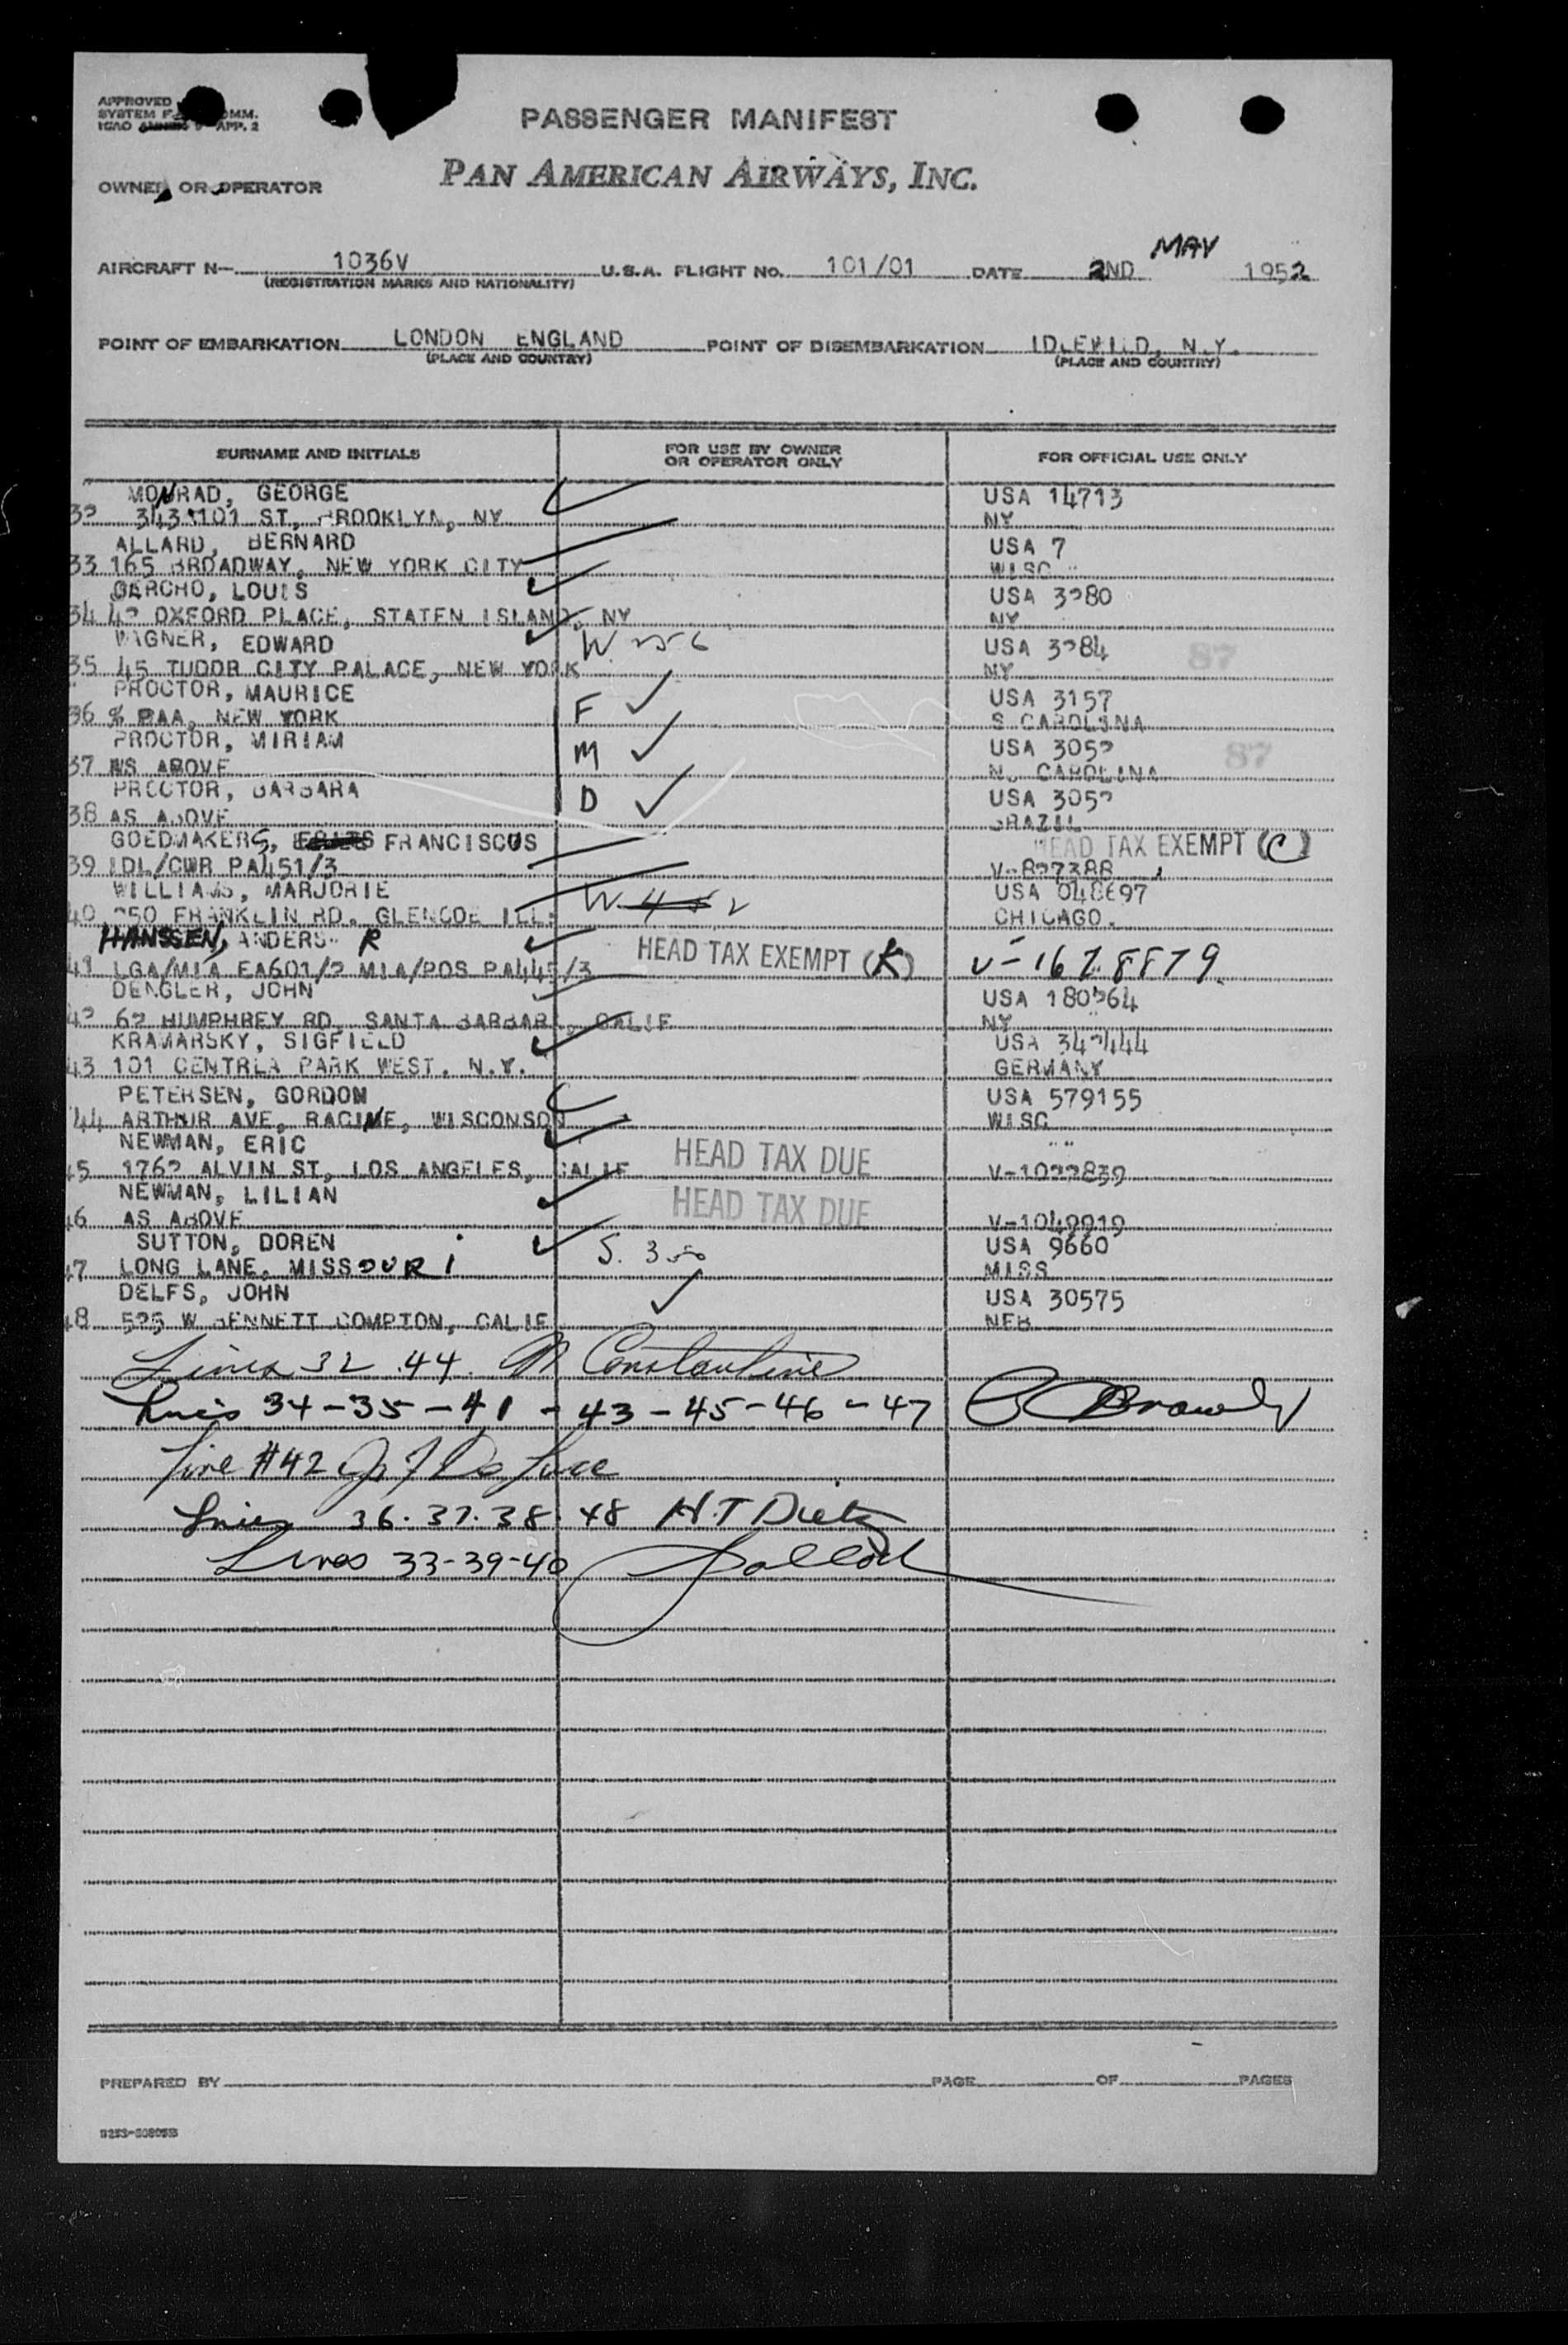 APPROVED
SYSTEM F COMM.
ICAO ANNEX 9 APP. 2
PASSENGER MANIFEST
OWNER OR OPERATOR PAN AMERICAN AIRWAYS, INC.
AIRCRAFT N- 1036V U.S.A. FLIGHT NO. 101/01 DATE 2ND MAY 1952
(REGISTRATION MARKS AND NATIONALITY)
POINT OF EMBARKATION LONDON ENGLAND POINT OF DISEMBARKATION IDLEWILD, N.Y.
(PLACE AND COUNTRY) (PLACE AND COUNTRY)
SURNAME AND INITIALS FOR USE BY OWNER OR OPERATOR ONLY FOR OFFICIAL USE ONLY
MONRAD, GEORGE USA 14713
32 343 101 ST, BROOKLYN, NY NY
ALLARD, BERNARD USA 7
33 165 BROADWAY, NEW YORK CITY WISC
GARCHO, LOUIS USA 3280
34 42 OXFORD PLACE, STATEN ISLAND, NY NY
WAGNER, EDWARD W 256 USA 3284
35 45 TUDOR CITY PALACE, NEW YORK NY 87
PROCTOR, MAURICE USA 3157
36 % PAA, NEW YORK F S CAROLINA
PROCTOR, MIRIAM M USA 3052
37 AS ABOVE N. CAROLINA 87
PROCTOR, BARBARA D USA 3052
38 AS ABOVE BRAZIL
GOEDMAKERS, FRANCISCUS HEAD TAX EXEMPT (C)
39 IDL/CWR PA451/3 V-897388
WILLIAMS, MARJORIE USA 048697
40 250 FRANKLIN RD. GLENCOE ILL. W 452 CHICAGO.
HANSSEN, ANDERS R HEAD TAX EXEMPT (K) V-1678879
41 LGA/MIA EA601/2 MIA/POS PA445/3
DENGLER, JOHN USA 180264
42 62 HUMPHREY RD, SANTA BARBARA, CALIF NY
KRAMARSKY, SIGFIELD USA 342444
43 101 CENTRLA PARK WEST, N.Y. GERMANY
PETERSEN, GORDON USA 579155
44 ARTHUR AVE, RACINE, WISCONSON WISC
NEWMAN, ERIC HEAD TAX DUE
45 1762 ALVIN ST, LOS ANGELES, CALIF V-1022839
NEWMAN, LILIAN HEAD TAX DUE
46 AS ABOVE V-1049919
SUTTON, DOREN S. 350 USA 9660
47 LONG LANE, MISSOURI MISS
DELFS, JOHN USA 30575
48 525 W BENNETT COMPTON, CALIF NEB
Lines 32 .44. M Constantine
Lines 34-35-41-43-45-46-47
Line #42
Lines 36.37.38 48 H.T Dietz
Lines 33-39-40
PREPARED BY PAGE OF PAGES